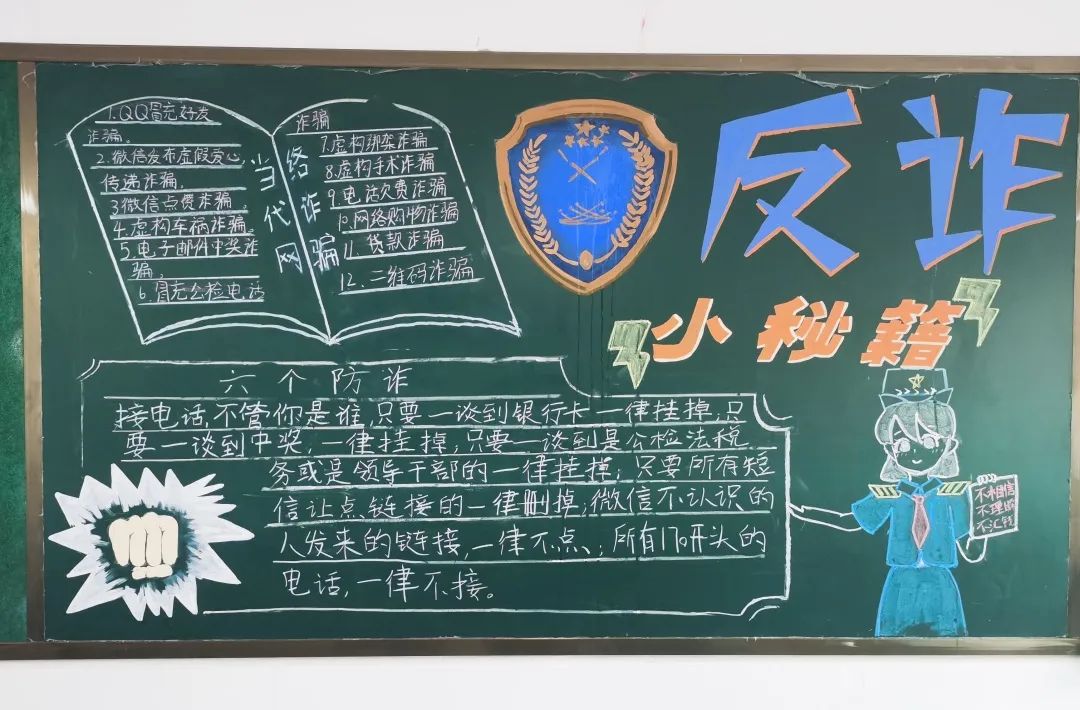 反诈
小秘籍
当代网
络诈骗
1.QQ冒充好友
诈骗。
2.微信发布虚假爱心
传递诈骗.
3微信点赞诈骗.
4.虚构车祸诈骗。
5.电子邮件中奖诈
骗.
6.冒充公检电话
诈骗
7.虚构绑架诈骗
8.虚构手术诈骗
9.电话欠费诈骗
10.网络购物诈骗
11.贷款诈骗
12.二维码诈骗
六个防诈
接电话,不管你是谁,只要一谈到银行卡一律挂掉,只
要一谈到中奖,一律挂掉;只要一谈到是公检法税
务或是领导干部的一律挂掉;只要所有短
信让点链接的一律删掉;微信不认识的
人发来的链接,一律不点、;所有170开头的
电话,一律不接。
不相信
不理睬
不汇钱